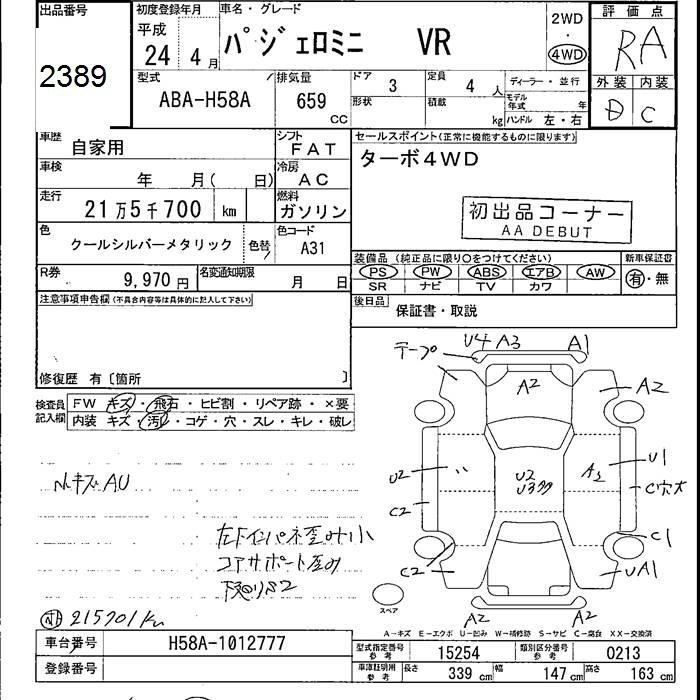 出品番号 初度登録年月 車名・グレード 2WD 評価点
2389 平成 24年 4月 パジェロミニ VR 4WD RA
型式 排気量 ドア 定員 ディーラー・並行 外装 内装
ABA-H58A 659 CC 3 4人 D C
形状 積載 kg モデル年式 年 ハンドル 左・右
車歴 自家用 シフト FAT セールスポイント(正常に機能するものに限ります)
車検 年 月( 日) 冷房 AC ターボ4WD
走行 21万5千700 km 燃料 ガソリン 初出品コーナー
AA DEBUT
色 クールシルバーメタリック 色替 色コード A31
装備品 (純正品に限り○をつけてください) 新車保証書
PS PW ABS エアB AW 有・無
SR ナビ TV カワ
R券 9,970円 名変通知期限 月 日
後日品 保証書・取説
注意事項申告欄(不具合内容等は具体的に記入して下さい)
修復歴 有〔箇所 〕
検査員記入欄 FW キズ・飛石・ヒビ割・リペア跡・×要
内装 キズ・汚れ・コゲ・穴・スレ・キレ・破レ
テープ U4 A3 A1
A2 A2
U2 U2 A2 U1
C2 C穴大
C2 C1
UA1
A2 A2
スペア
キズAU
コアサポート歪み
215701km
A-キズ E-エクボ U-凹み W-補修跡 S-サビ C-腐食 XX-交換済
車台番号 H58A-1012777 型式指定番号 参考 15254 類別区分番号 参考 0213
登録番号 車庫証明用 参考 長さ 339 cm 幅 147 cm 高さ 163 cm